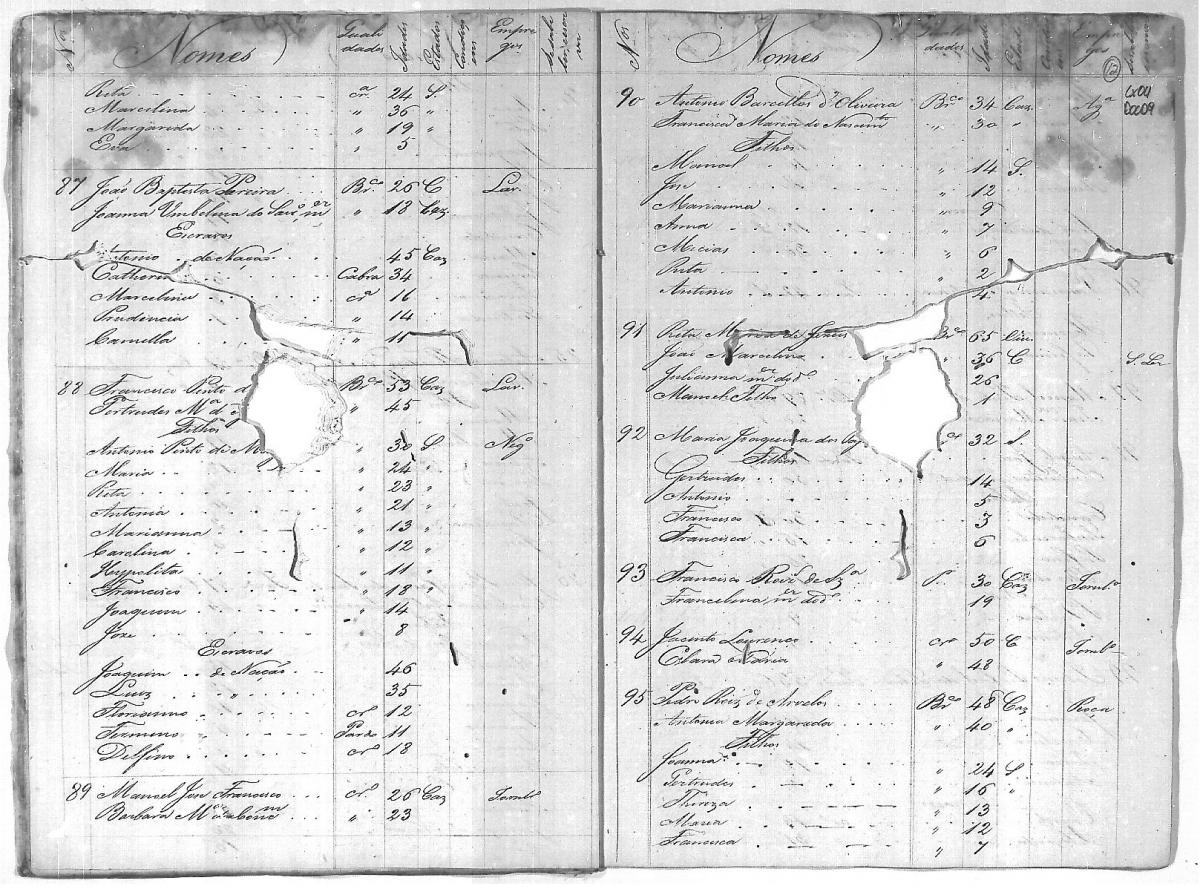 Nos Nomes Quali dades Idades Estados Empre gos
Rita cra 24 S.
Marcelina " 36 "
Margarida " 19 "
Eva " 5
87 João Baptista Pereira Brco 26 C Lav.
Joanna Umbelina do " 18 Caz
Escravos
Antonio de Nação 45 Caz
Catherin Cabra 34
Marcelina cra 16
Prudencia " 14
Camella " 11
88 Francisco Pinto d Brco 53 Caz Lav.
Gertrudes Ma d " 45
Filhos
Antonio Pinto de M " 30 S Nego
Maria " 24 "
Rita " 23 "
Antonia " 21 "
Marianna " 13 "
Carolina " 12 "
Hyppolita " 11 "
Francisco " 18 "
Joaquim " 14
Joze 8
Escravos
Joaquim de Nação 46
Luiz " 35
Florianno cro 12
Firmino " Pardo 11
Delfino cro 18
89 Manoel Jose Francisco cro 26 Caz Jornlo
Barbara Ma " 23
Nos Nomes Quali dades Idade Estado Empre gos
12
CX 04
DOC 09
90 Antonio Barcellos d'Oliveira Brco 34 Caz Aga
Francisca Maria do Nascimto " 30 "
Filhos
Manoel " 14 S.
Jose " 12
Marianna " 9
Anna " 7
Micias " 6
Rita " 2
Antonio 4
91 Rita Maria de Jesus Bra 65 Viu.
João Marcelino " 36 C S. Ler
Julianna mer do do 26
Manoel Filho 1
92 Maria Joaquina dos 32 S.
Filhos
Gertrudes 14
Antonio 5
Francisco 3
Francisca 6
93 Francisco Roiz de Sza P. 30 Caz Jornlo
Francelina mer do do 19
94 Jacinto Lourenco cro 50 C Jornlo
Clara Maria " 48
95 Pedro Roiz de Arvelos Brco 48 Caz Roça
Antonia Margarida " 40 "
Filhos
Joanna " 24 S
Gertrudes " 16 "
Thereza " 13
Maria " 12
Francisca " 7